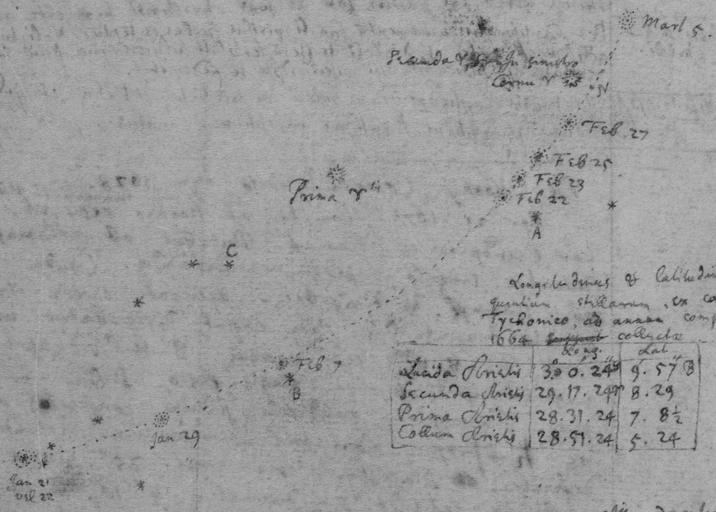 Mart 5.
Secunda ♈ in sinistro
Cornu ♈
Feb 27
Feb 25
Feb 23
Feb 22
Prima ♈tis
A
C
Longitudines & latitudin
stellarum, ex
Tychonico, ad annum comp
1664 collectæ
Long. Lat
Lucida Arietis 3.0.24 9.57 B
Secunda Arietis 29.17.24 8.29
Prima Arietis 28.31.24 7.8½
Collum Arietis 28.51.24 5.24
Feb 7
B
Jan 29
Jan 21
vel 22